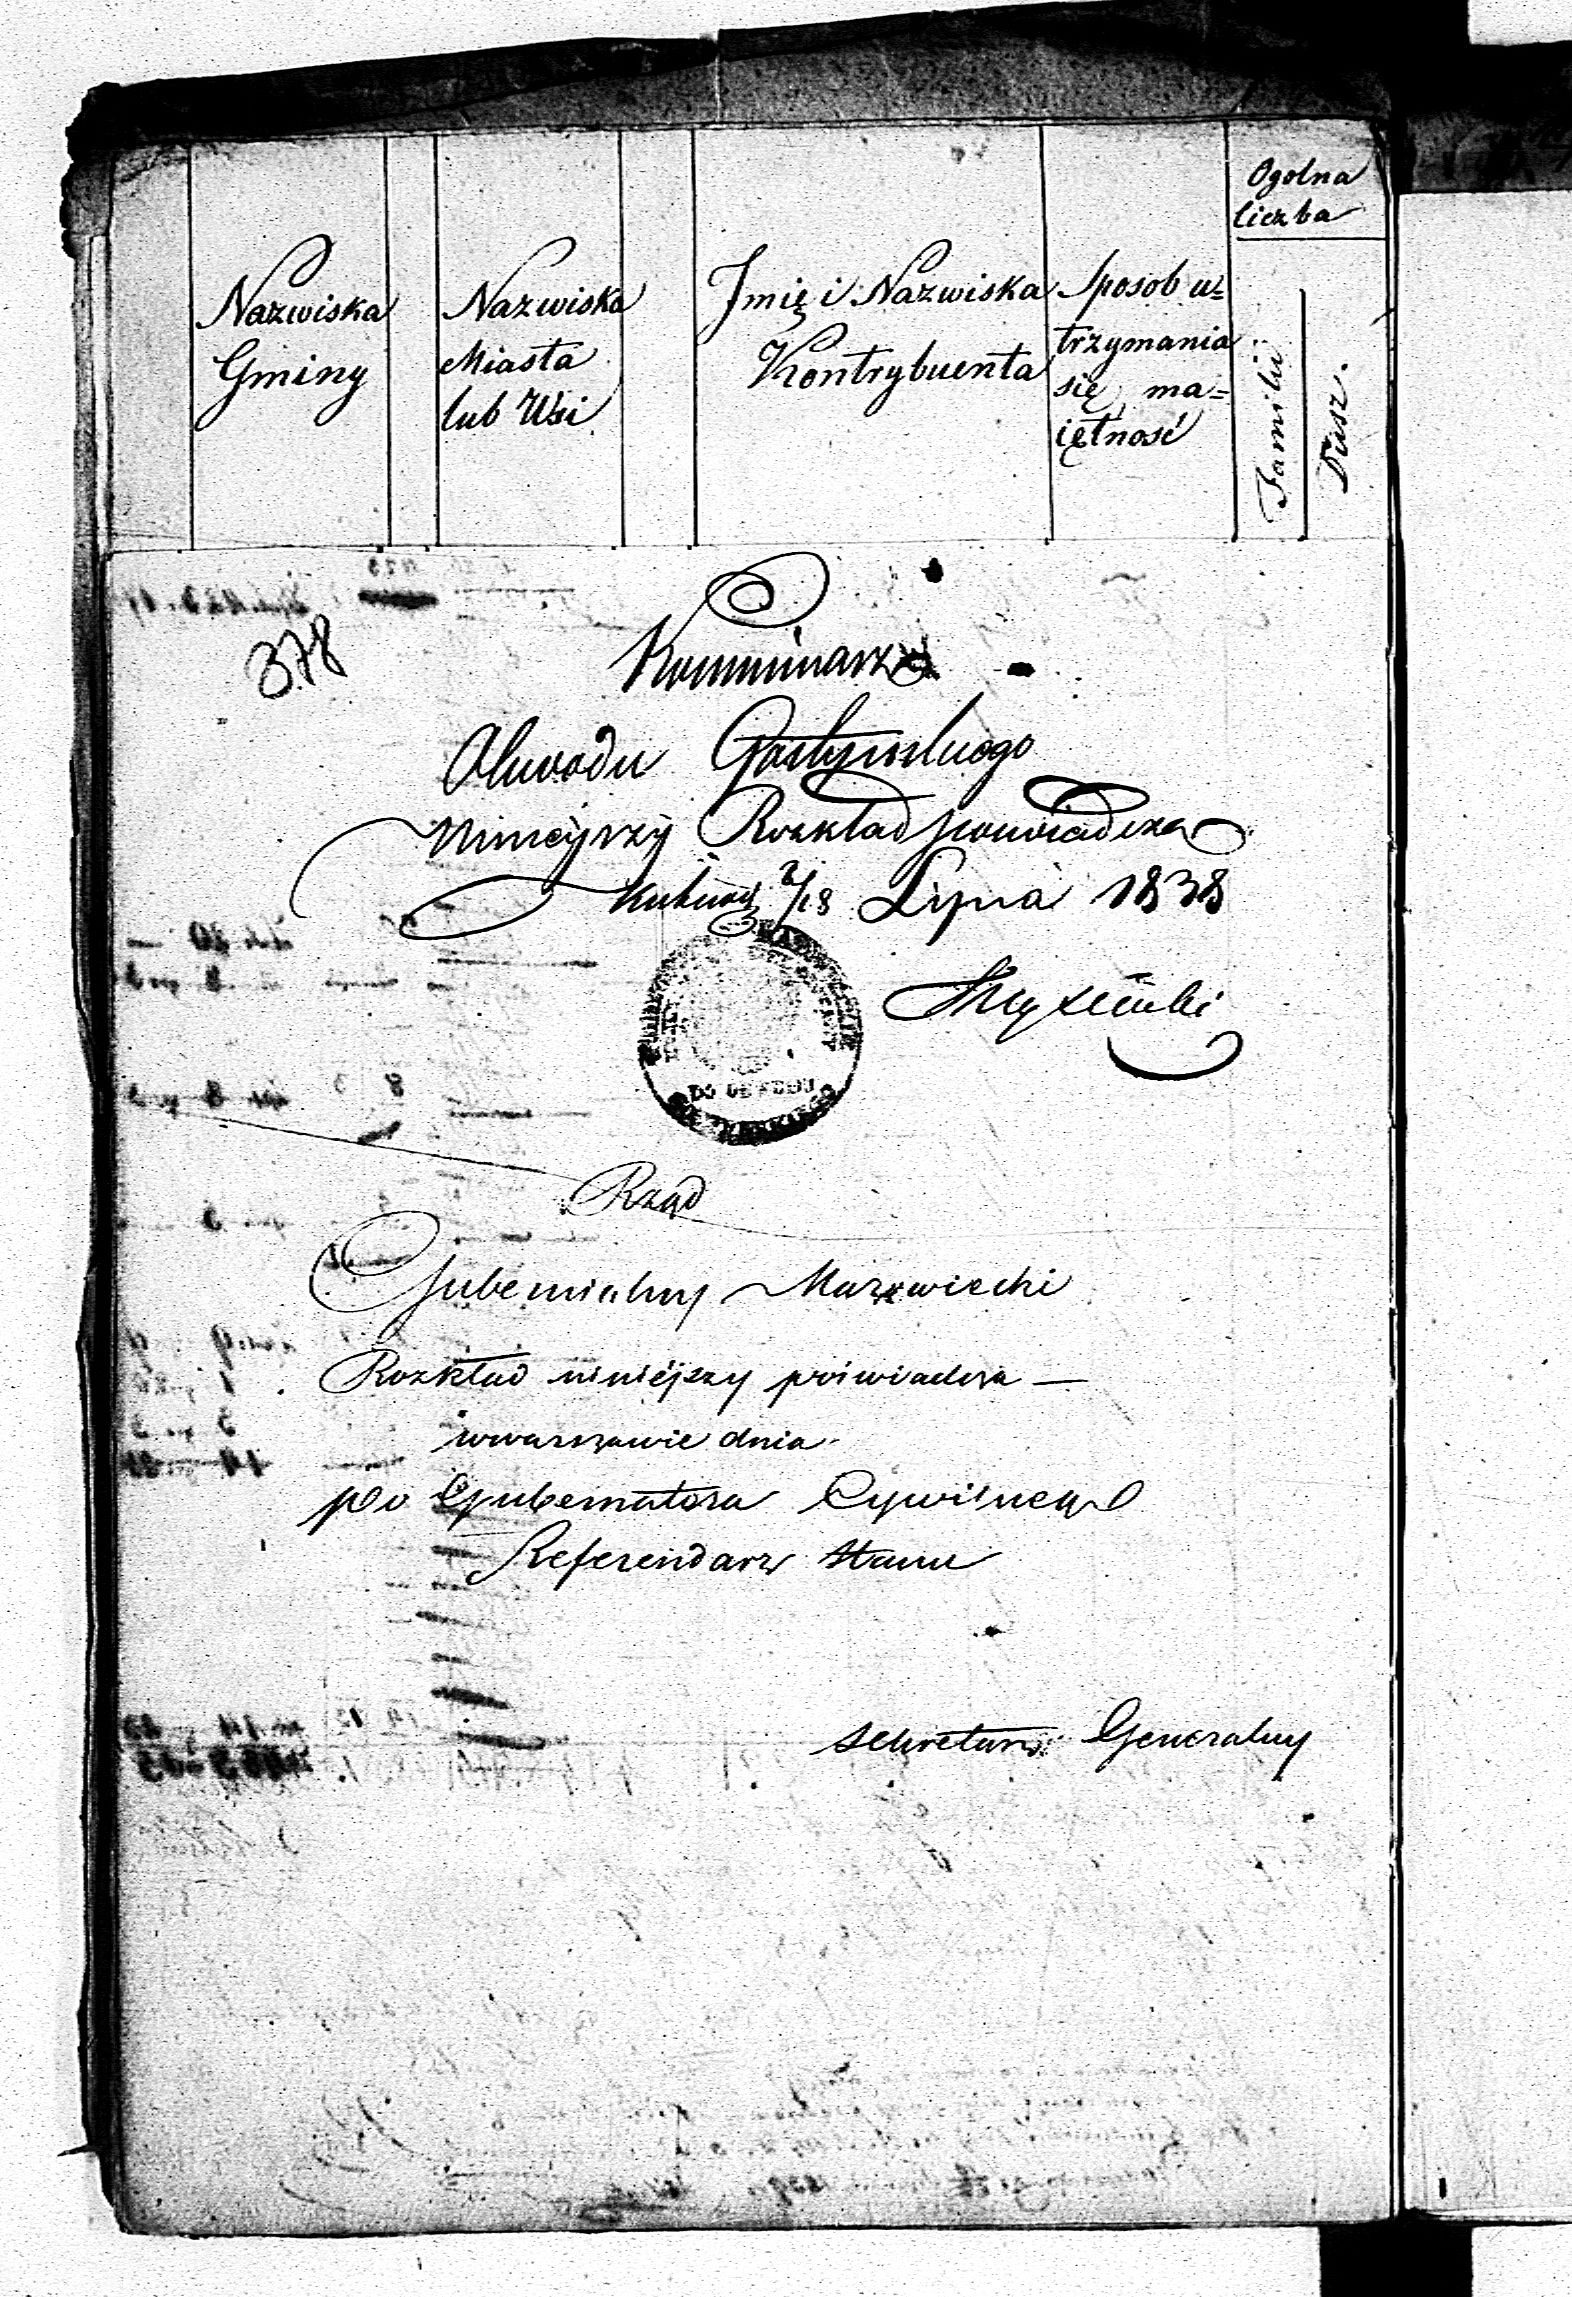 Nazwiska
Gminy
Nazwiska
Miasta
lub Wsi
Jmię i Nazwiska
Kontrybuenta
Sposob u=
trzymania
się ma=
iętność
Ogolna
liczba
Familii
Dusz.
378
Kommissarz
Obwodu Gostynskiego
Ninieyszy Rozkład poswiadcza
Kutno d. /18 Lipca 1838
DO OBWODU
Rząd
Gubernialny Mazowiecki
Rozkład niniejszy poświadcza —
w Warszawie dnia
po Gubernatora Cywilnego
Referendarz Stanu
Sekretarz Generalny